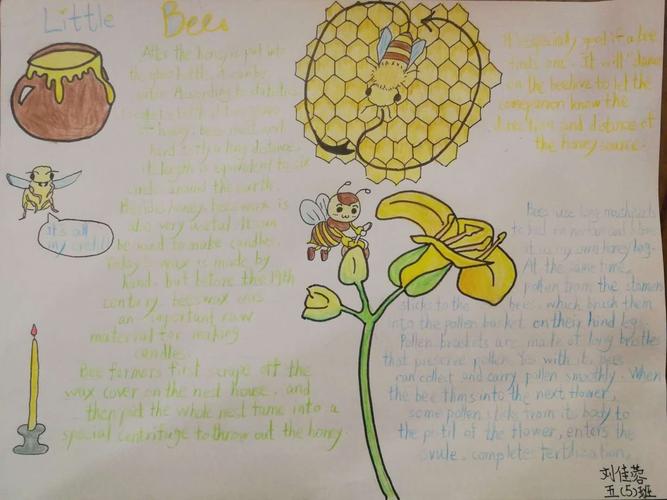 Little Bees
After the honey is put into
the glass bottle, it can be
According to statistics
honey, bees need
hard to fly a long distance,
its length is equivalent to six
circles around the earth.
Besides honey, bees wax is
also very useful. It can
be used to make candles.
Today's wax is made by
hand. but before the 19th
century. bees wax was
an important raw
material for making
candles.
Bee farmers first scrape off the
wax cover on the nest house, and
then put the whole nest frame into a
special centrifuge to throw out the honey.
It's all
my credit!
It's especially good if a bee
finds one. It will dance
on the beehive to let the
companion know the
direction and distance of
the honey source.
Bees use long mouthparts
to nectar and
it in own honey bag.
At the same time,
pollen from the stamens
sticks to the bees. which brush them
into the pollen basket on their hind legs.
Pollen baskets are made of long bristles
that preserve pollen. with it, bees
can collect and carry pollen smoothly. When
the bee into the next flower,
some pollen sticks from its body to
the pistil of the flower, enters the
ovule. completes fertilization.
刘佳蓉
五(5)班